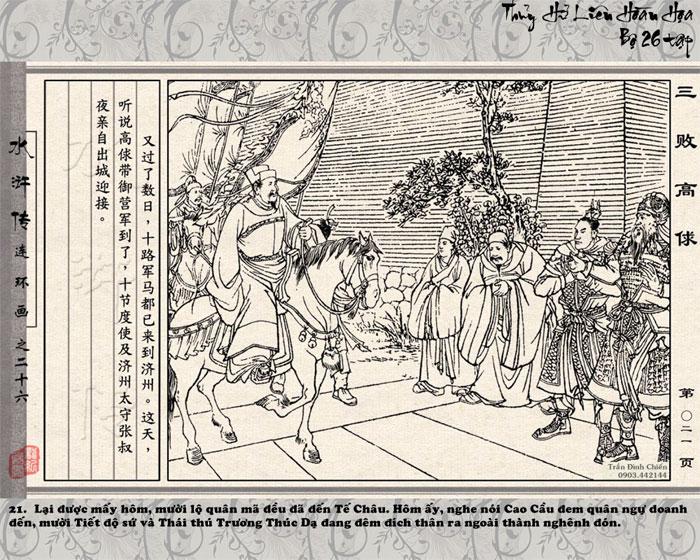 Thủy Hử Liên Hoàn Họa
Bộ 26 tập
水浒传连环画之二十六
三败高俅
又过了数日，十路军马都已来到济州。这天，
听说高俅带御营军到了，十节度使及济州太守张叔
夜亲自出城迎接。
第〇二一页
Trần Đình Chiến
0903.442144
21. Lại được mấy hôm, mười lộ quân mã đều đã đến Tế Châu. Hôm ấy, nghe nói Cao Cầu đem quân ngự doanh
đến, mười Tiết độ sứ và Thái thú Trương Thúc Dạ đang đêm đích thân ra ngoài thành nghênh đón.